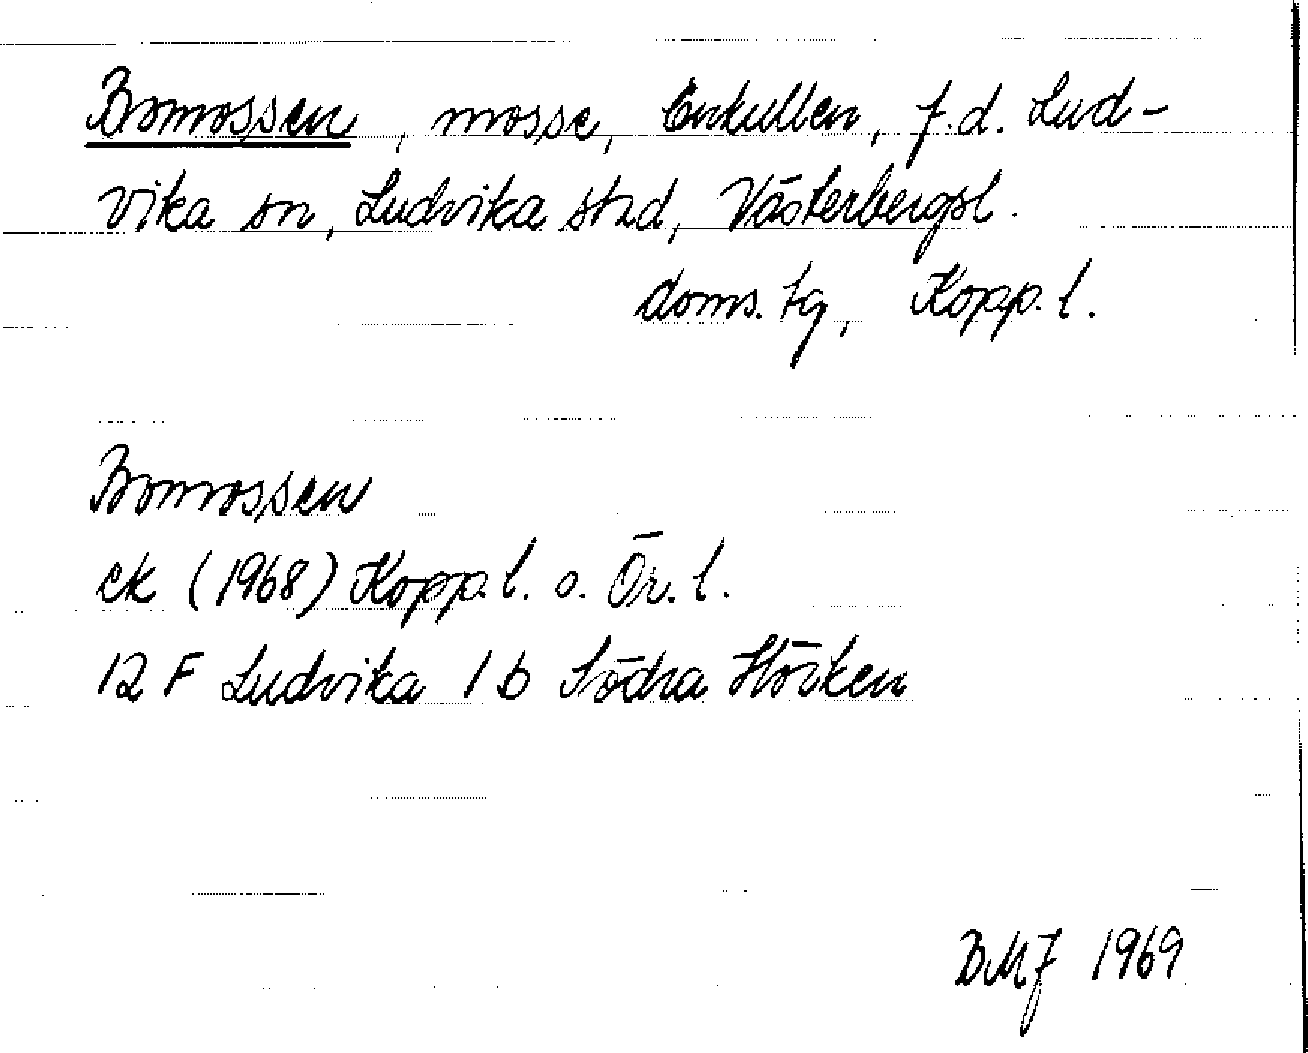 Bomossen, mosse, Enkullen, f.d. Lud-
vika sn, Ludvika stad, Västerbergsl.
doms.tg, Kopp.l.
Bomossen
ek (1968) Kopp.l. o. Ör.l.
12 F Ludvika 1 b Södra Hörken
BMJ 1969